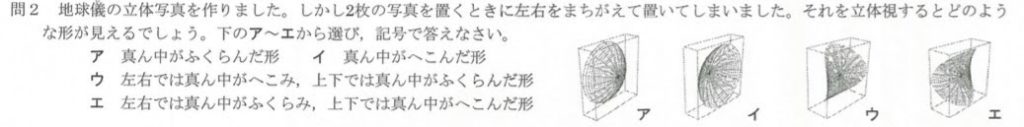 問2 地球儀の立体写真を作りました。しかし2枚の写真を置くときに左右をまちがえて置いてしまいました。それを立体視するとどのよう
な形が見えるでしょう。下のア〜エから選び，記号で答えなさい。
ア 真ん中がふくらんだ形 イ 真ん中がへこんだ形
ウ 左右では真ん中がへこみ，上下では真ん中がふくらんだ形
エ 左右では真ん中がふくらみ，上下では真ん中がへこんだ形
ア イ ウ エ